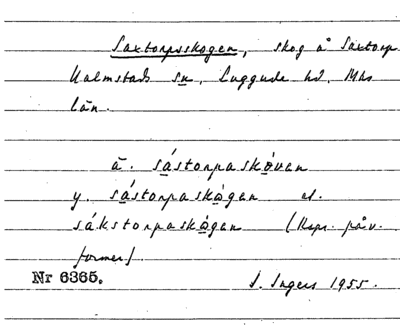 Saxtorpsskogen, skog å Saxtorp
Halmstads sn, Luggude hd, Mhs
län.
ä. sástorpaskòvan
y. sástorpaskògan el.
sákstorpaskògan (Rspr. påv.
former)
Nr 6365.
I. Ingers 1955.